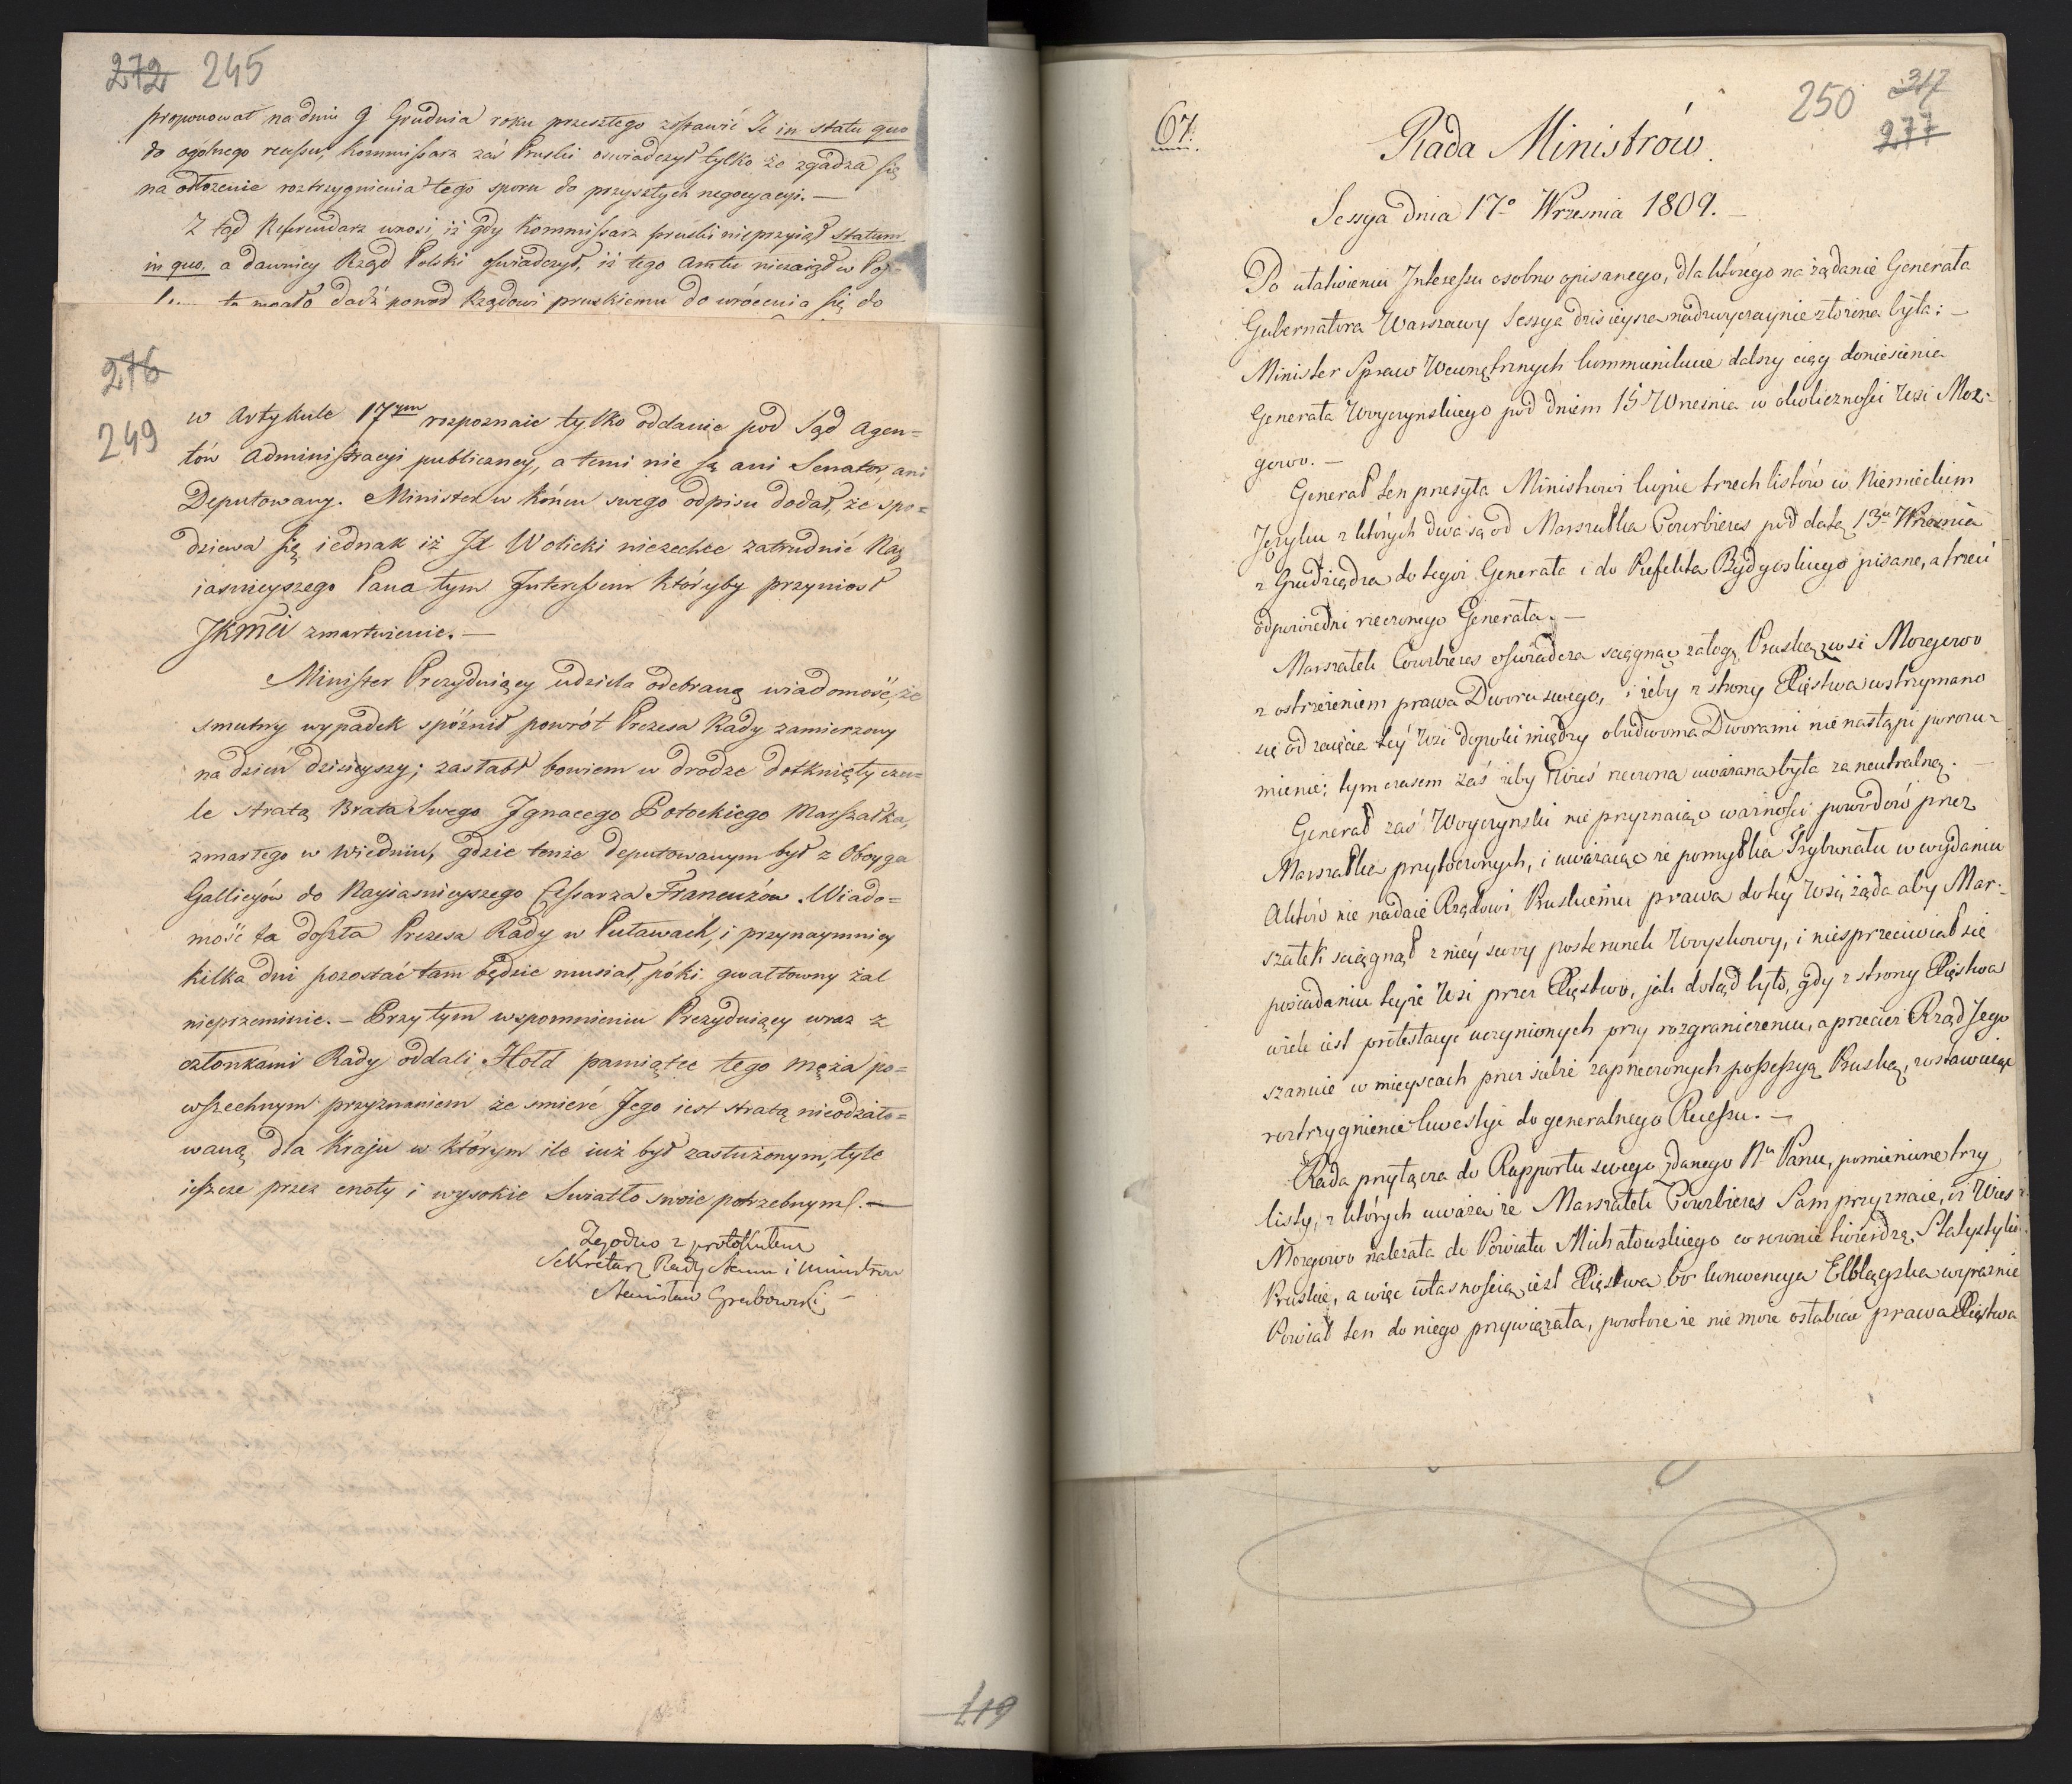 272 245
proponował na dniu 9 Grudnia roku przeszłego zostawić Je in statu quo
do ogólnego recessu, Kommissarz zaś Pruski oswiadczył tylko że zgadza się
na odłożenie roztrzygnienia tego sporu do przyszłych negocyacyi. —
Z tąd Referendarz wnosi, iż gdy Kommissarz pruski nieprzyiął statum
in quo, a dawniey Rząd Polski oswiadczył, iż tego Amtu niezaiął w Po-
to mogło dadź powod Rządowi pruskiemu do wrócenia się do
276
249
w Artykule 17ym rozpoznaie tylko oddanie pod Sąd Agen=
tów Administracyi publiczney, a temi nie są ani Senator, ani
Deputowany. Minister w końcu swego odpisu dodał, że spo=
dziewa się iednak iż Jx Wolicki niezechce zatrudnić Nay
iasnieyszego Pana tym Interessem któryby przyniosł
JKMci zmartwienie. —
Minister Prezyduiący udziela odebraną wiadomość, że
smutny wypadek spóźnił powrót Prezesa Rady zamierzony
na dzień dzisieyszy; zasłabł bowiem w drodze dotknięty czu=
le stratą Brata Swego Ignacego Potockiego Marszałka,
zmarłego w Wiedniu, gdzie tenże deputowanym był z Oboyga
Gallicyów do Nayiasnieyszego Cesarza Francuzów. Wiado=
mość ta doszła Prezesa Rady w Puławach, i przynaymniey
kilka dni pozostać tam będzie musiał, póki gwałtowny żal
nieprzeminie. — Przy tym wspomnieniu Prezyduiący wraz z
członkami Rady oddali Hołd pamiątce tego Męża po=
wszechnym przyznaniem że smierć Jego iest stratą nieodżało=
waną dla Kraju w którym ile iuż był zasłużonym, tyle
ieszcze przez cnoty i wysokie Swiatło swoie potrzebnym. —
Zgodno z protokułem
Sekretarz Rady Stanu i Ministrow
Stanisław Grabowski
419
67.
250 317
277
Rada Ministrów.
Sessya dnia 17o Wrzesnia 1809. —
Po ułatwieniu Interessu osobno opisanego, dla którego na żądanie Generała
Gubernatora Warszawy Sessya dzisieysza nadzwyczaynie złożona była: —
Minister Spraw Wewnętrznych kommunikuie dalszy ciąg doniesienia
Generała Woyczynskiego pod dniem 15 Wrzesnia w okoliczności Wsi Moz-
gowo. —
Generał ten przesyła Ministrowi kopie trzech listów w Niemieckim
Języku z których dwa są od Marszałka Courbieres pod datą 13a Wrzesnia
z Grudziądza do tegoż Generała i do Prefekta Bydgoskiego pisane, a trzeci
odpowiedni rzeczonego Generała. —
Marszałek Courbieres oswiadcza sciągnąć załogę Pruską z wsi Mozgowo
z ostrzeżeniem prawa Dworu swego, i żeby z strony Xięstwa wstrzymano
się od zaięcia tey Wsi dopoki między obudwoma Dworami nie nastąpi porozu-
mienie; tymczasem zaś żeby Wieś rzeczona uważana była za neutralną. —
Generał zaś Woyczynski nie przyznaiąc ważności powodów przez
Marszałka przytoczonych, i uważaiąc że pomyłka Trybunału w wydaniu
Aktów nie nadaie Rządowi Pruskiemu prawa do tey Wsi, żąda aby Mar-
szałek sciągnął z niey swoy posterunek Woyskowy, i niesprzeciwiał się
posiadaniu teyże Wsi przez Xięstwo, jak dotąd było, gdy z strony Xięstwa
wiele iest protestacyi uczynionych przy rozgraniczeniu, a przecież Rząd Jego
szanuie w mieyscach przez siebie zaprzeczonych possessyą Pruską, zostawuiąc
roztrzygnienie kwestyi do generalnego Recessu. —
Rada przyłącza do Rapportu swego zdanego Nu Panu, pomienione trzy
listy, z których uważa że Marszałek Courbieres Sam przyznaie, iż Wies
Mozgowo należała do Powiatu Michałowskiego co rownie twierdzą Statystyki
Pruskie, a więc własnością iest Xięstwa bo konwencya Elblągska wyraznie
Powiat ten do niego przywiązała, powtore że nie może osłabiać prawa Xięstwa